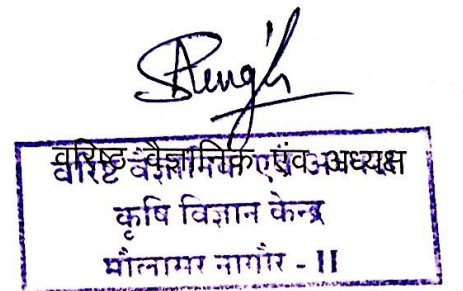 वरिष्ठ वैज्ञानिक एंव अध्यक्ष
कृषि विज्ञान केन्द्र
मौलासर नागौर - II